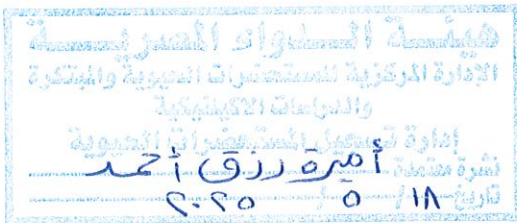 هيئة الدواء المصرية
الإدارة المركزية للمستحضرات الحيوية والمبتكرة
والدراسات الاكلينيكية
إدارة تسجيل المستحضرات الحيوية
أميرة رزق أحمد
نشرة معتمدة
تاريخ ١٨ / ٥ / ٢٠٢٥